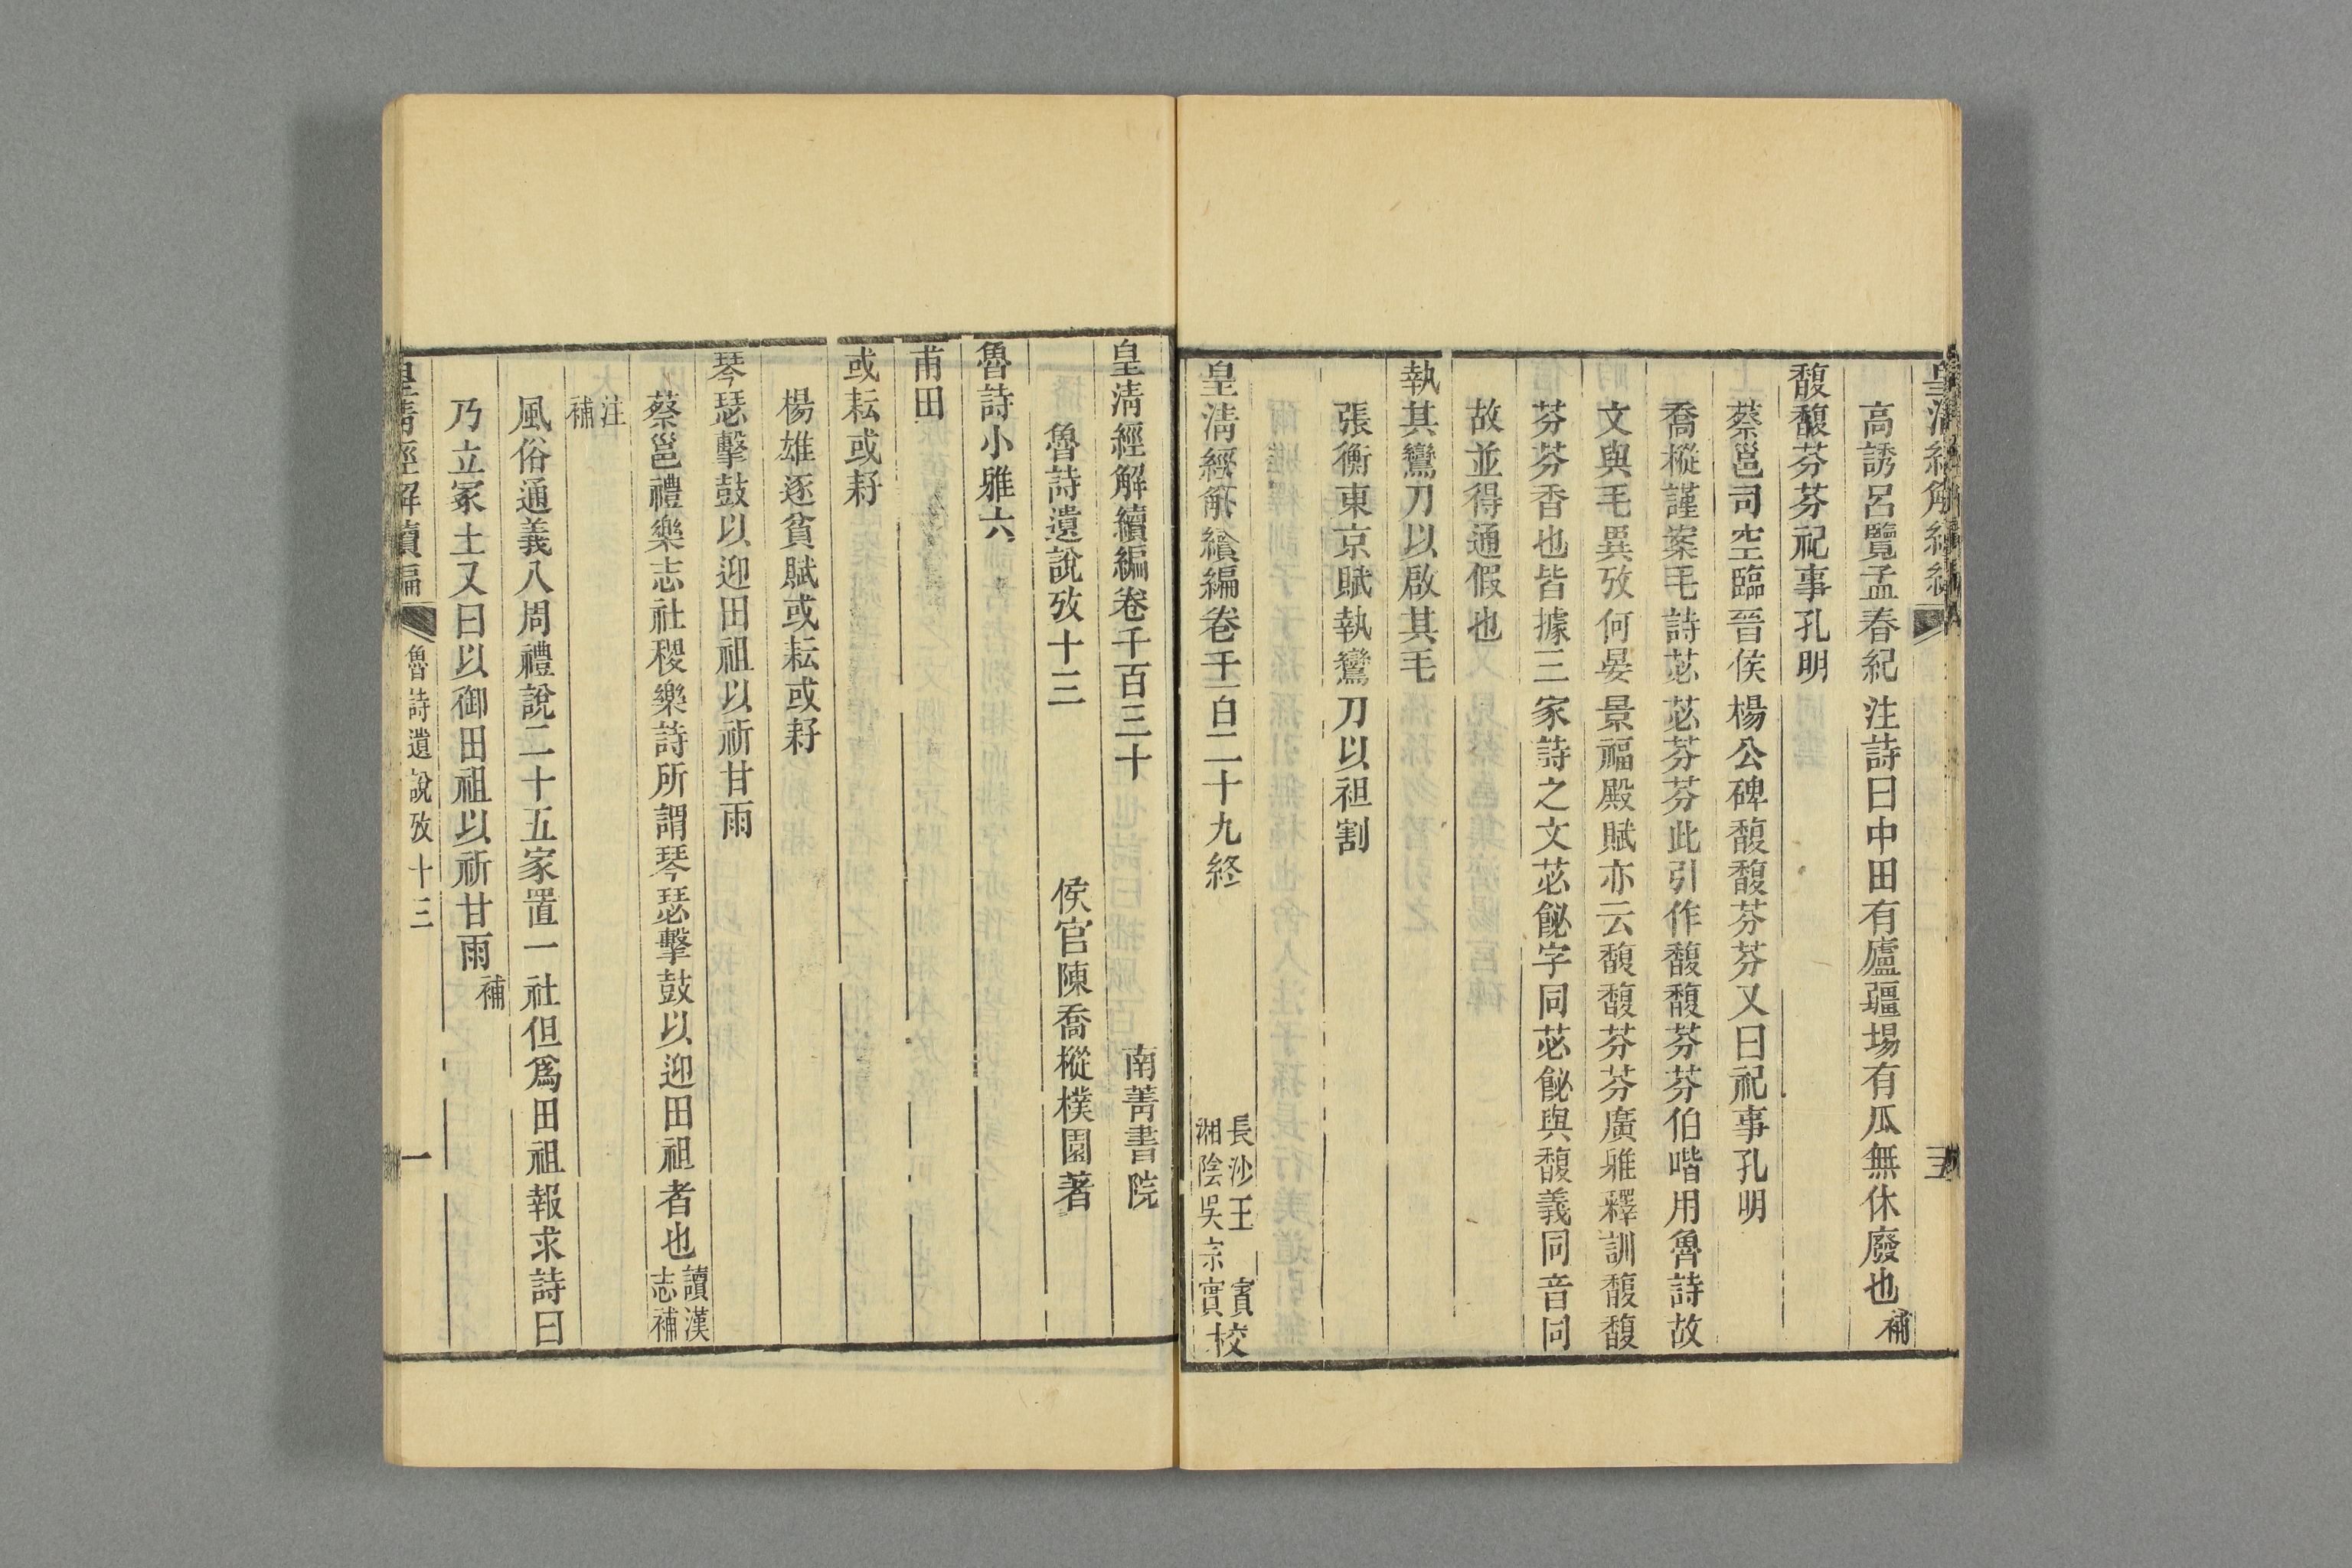 高誘呂覽孟春紀注詩曰中田有廬疆埸有瓜無休廢也補
馥馥芬芬祀事孔明
蔡邕司空臨晉侯楊公碑馥馥芬芬又曰祀事孔明
喬樅謹案毛詩苾苾芬芬此引作馥馥芬芬伯喈用魯詩故
文與毛異攷何晏景福殿賦亦云馥馥芬芬廣雅釋訓馥馥
芬芬香也皆據三家詩之文苾飶字同苾飶與馥義同音同
故並得通假也
執其鸞刀以啟其毛
張衡東京賦執鸞刀以袒割
皇淸經解續編卷千一百二十九終
長沙王 賓
湘陰吳宗實校
皇淸經解續編卷千百三十
南菁書院
魯詩遺說攷十三
侯官陳喬樅樸園著
魯詩小雅六
甫田
或耘或耔
楊雄逐貧賦或耘或耔
琴瑟擊鼓以迎田祖以祈甘雨
蔡邕禮樂志社稷樂詩所謂琴瑟擊鼓以迎田祖者也讀漢
志補
注
補
風俗通義八周禮說二十五家置一社但爲田祖報求詩曰
乃立冢土又曰以御田祖以祈甘雨補
皇淸經解續編
魯詩遺說攷十三
一